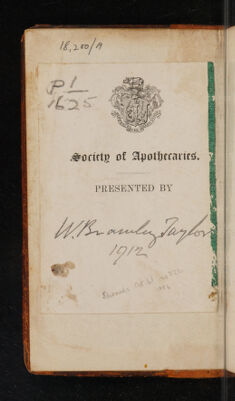 18,200/A
P1
1625
Society of Apothecaries.
PRESENTED BY
W. Bramley Taylor
1912